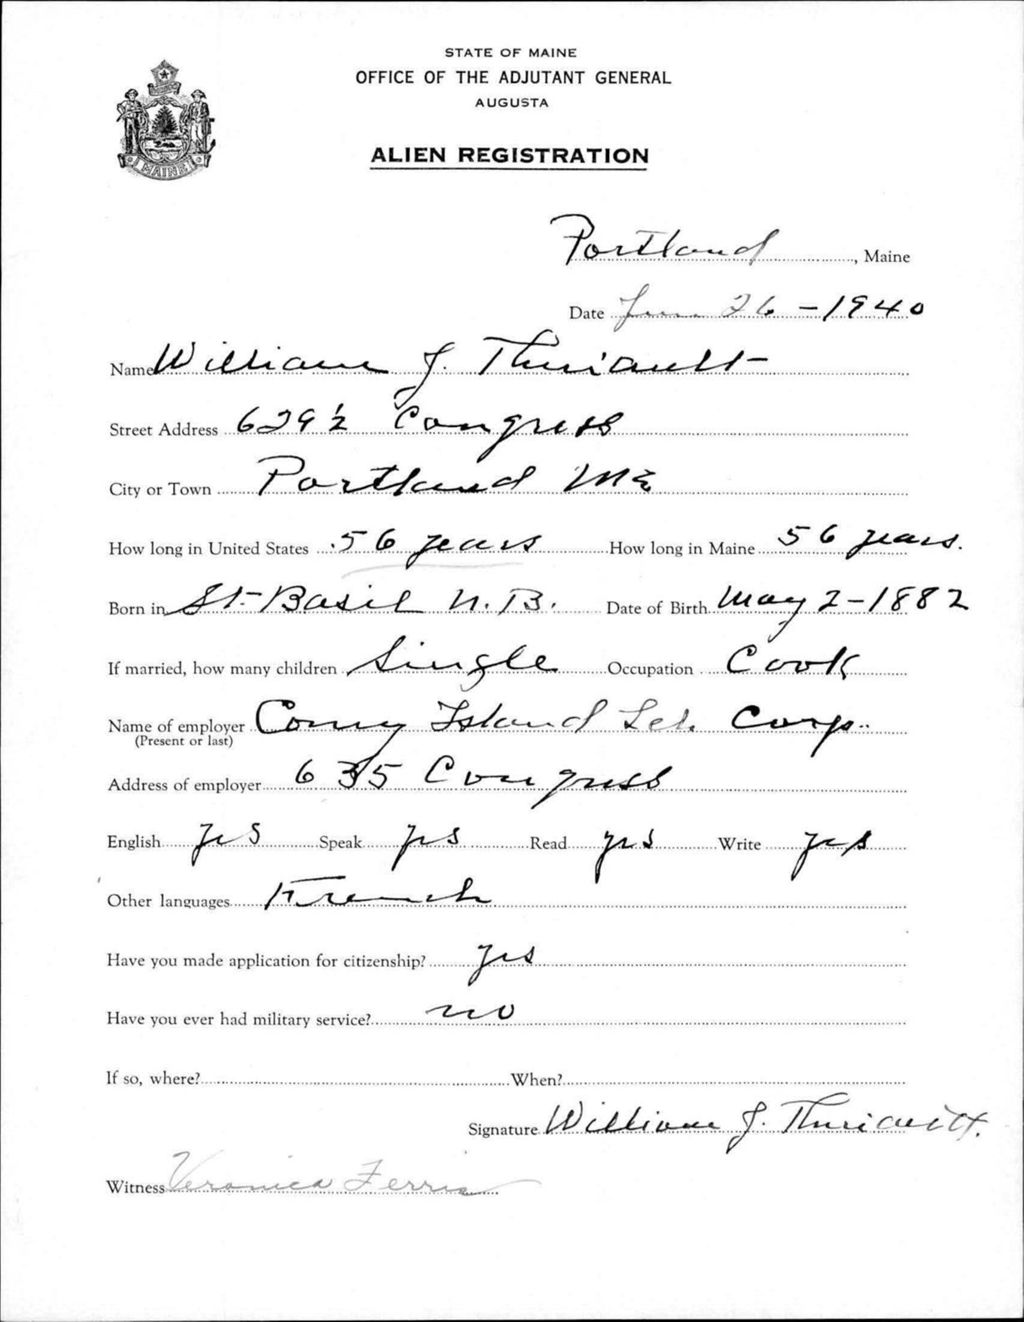 STATE OF MAINE
OFFICE OF THE ADJUTANT GENERAL
AUGUSTA
ALIEN REGISTRATION
MAINE
Portland, Maine
Date June 26 - 1940
Name William J. Thuriault
Street Address 629 1/2 Congress
City or Town Portland Me
How long in United States 56 years How long in Maine 56 years.
Born in St-Basil N.B. Date of Birth May 2-1882
If married, how many children Single Occupation Cook
Name of employer Coney Island Corp.
(Present or last)
Address of employer 635 Congress
English yes Speak yes Read yes Write yes
Other languages French
Have you made application for citizenship? yes
Have you ever had military service? no
If so, where? When?
Signature William J. Thuriault.
Witness Veronica Ferris